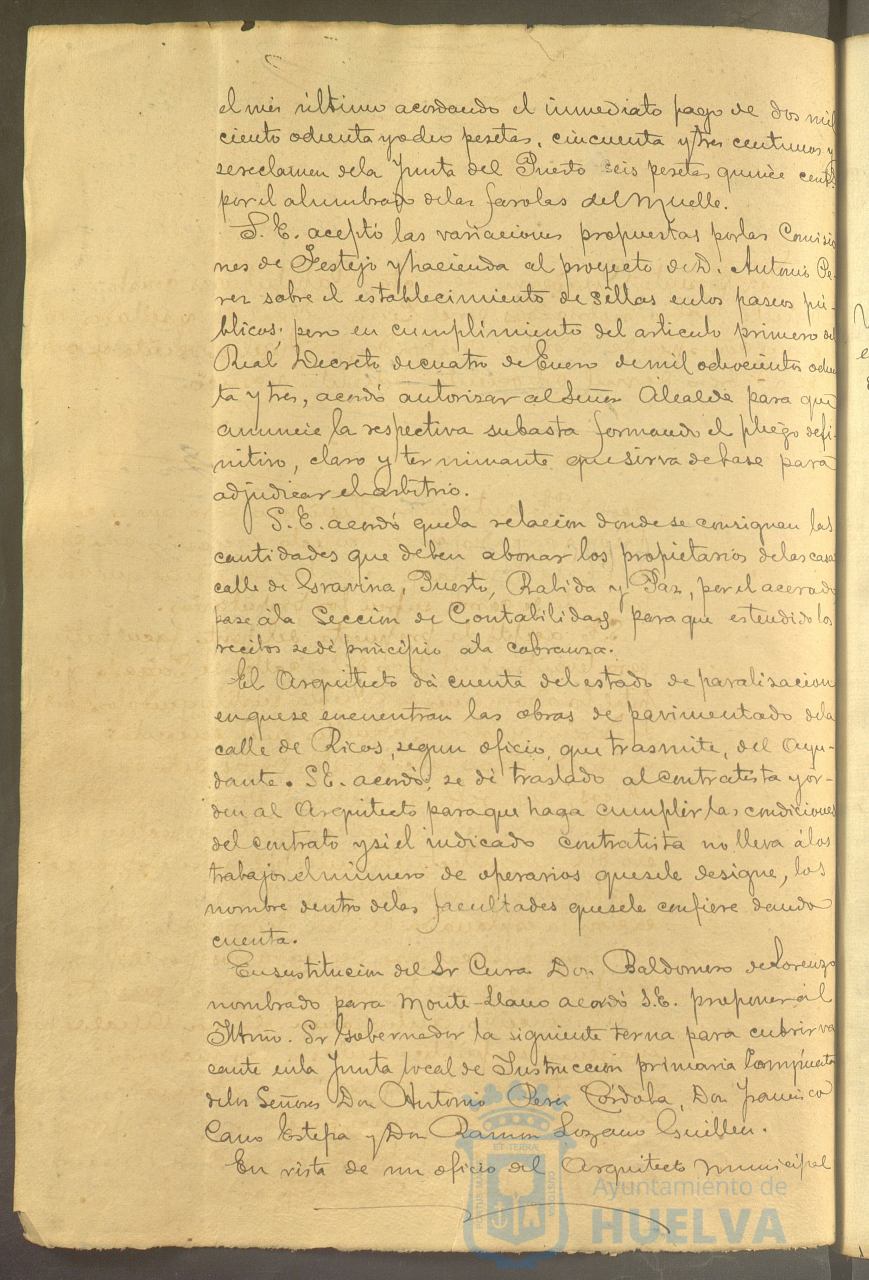 el mes último acordando el inmediato pago de dos mil
ciento ochenta y ocho pesetas, cincuenta y tres centimos y
se reclamen de la Junta del Puerto seis pesetas quince cent.
por el alumbrado de las farolas del Muelle.
S. E. aceptó las variaciones propuestas por las Comisio
nes de Festejo y hacienda al proyecto de D. Antonio Pe-
rez sobre el establecimiento de sillas en los paseos pú-
blicos; pero en cumplimiento del articulo primero del
Real Decreto de cuatro de Enero de mil ochocientos ochen
ta y tres, acordó autorizar al Señor Alcalde para que
anuncie la respectiva subasta formando el pliego defi-
nitivo, claro y terminante que sirva de base para
adjudicar el arbitrio.
S. E. acordó que la relacion donde se consignan las
cantidades que deben abonar los propietarios de las casas
calle de Gravina, Puerto, Rabida y Paz, por el acerado
pase á la Seccion de Contabilidad para que estendido los
recibos se dé principio a la cobranza.
El Arquitecto dá cuenta del estado de paralizacion
en que se encuentran las obras de pavimentado de la
calle de Ricos, segun oficio, que trasmite, del Ayu-
dante. S. E. acordó, se dé traslado al contratista y ór-
den al Arquitecto para que haga cumplir las condiciones
del contrato y si el indicado contratista no lleva á los
trabajos el número de operarios que se le designe, los
nombre dentro de las facultades que se le confiere dando
cuenta.
En sustitucion del Sr Cura Don Baldomero de Lorenzo
nombrado para Monte-Llano acordó S. E. proponer al
Iltmo. Sr Gobernador la siguiente terna para cubrir va
cante en la Junta local de Instruccion primaria Compuesta
de los Señores Don Antonio Perez Córdoba, Don Francisco
Cano Estepa y Don Ramon Lozano Guillen.
En vista de un oficio del Arquitecto Municipal
Ayuntamiento de
HUELVA